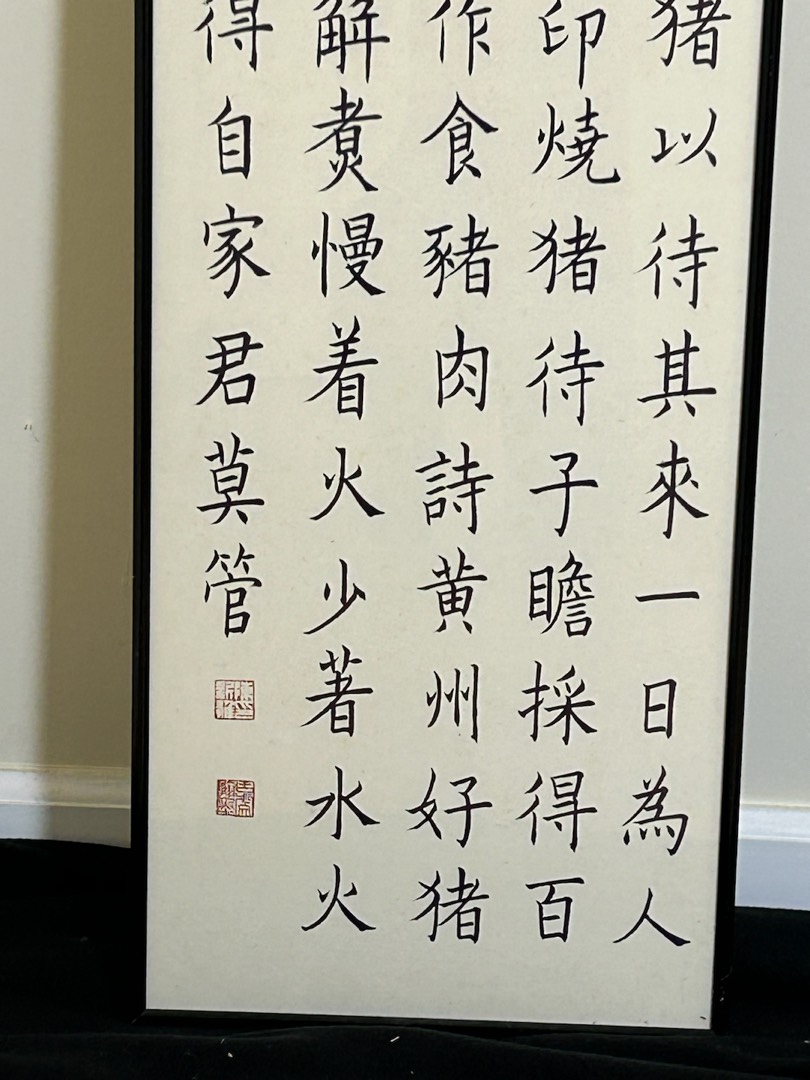 猪以待其來一日為人
印燒猪待子瞻採得百
作食豬肉詩黄州好猪
解煑慢着火少著水火
得自家君莫管